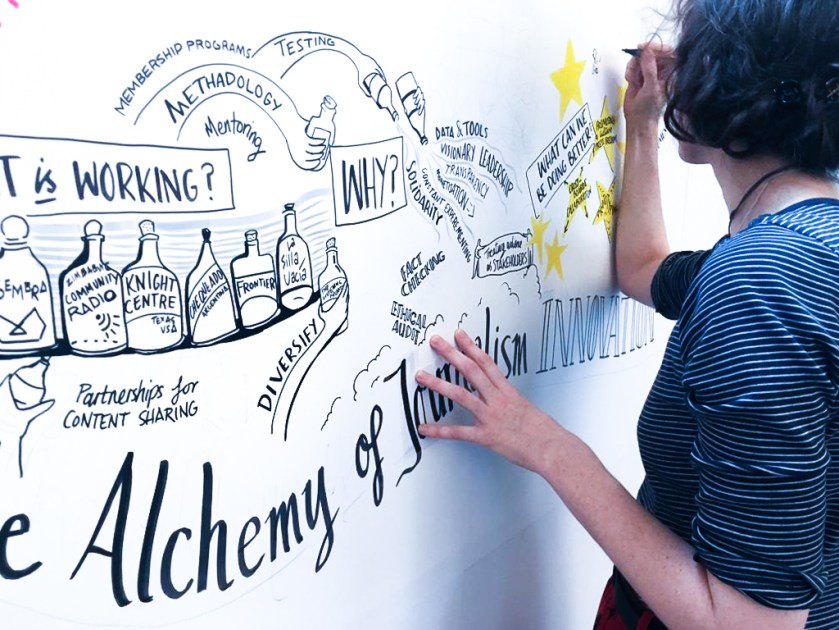 MEMBERSHIP PROGRAMS
TESTING
METHADOLOGY
Mentoring
T is WORKING?
WHY?
DATA & TOOLS
VISIONARY LEADERSHIP
TRANSPARENCY
MONETISATION
CONSTANT EXPERIMENTING
SOLIDARITY
WHAT CAN WE
BE DOING BETTER?
Testing audience
as STAKEHOLDERS
SEMBRA
ZIMBABWE
COMMUNITY
RADIO
KNIGHT
CENTRE
TEXAS
USA
CHEQUEADO
ARGENTINA
FRONTIER
La
Silla
Vacia
FACT
CHECKING
ETHICAL
AUDIT
DIVERSIFY
Partnerships for
CONTENT SHARING
e Alchemy of Journalism INNOVATION